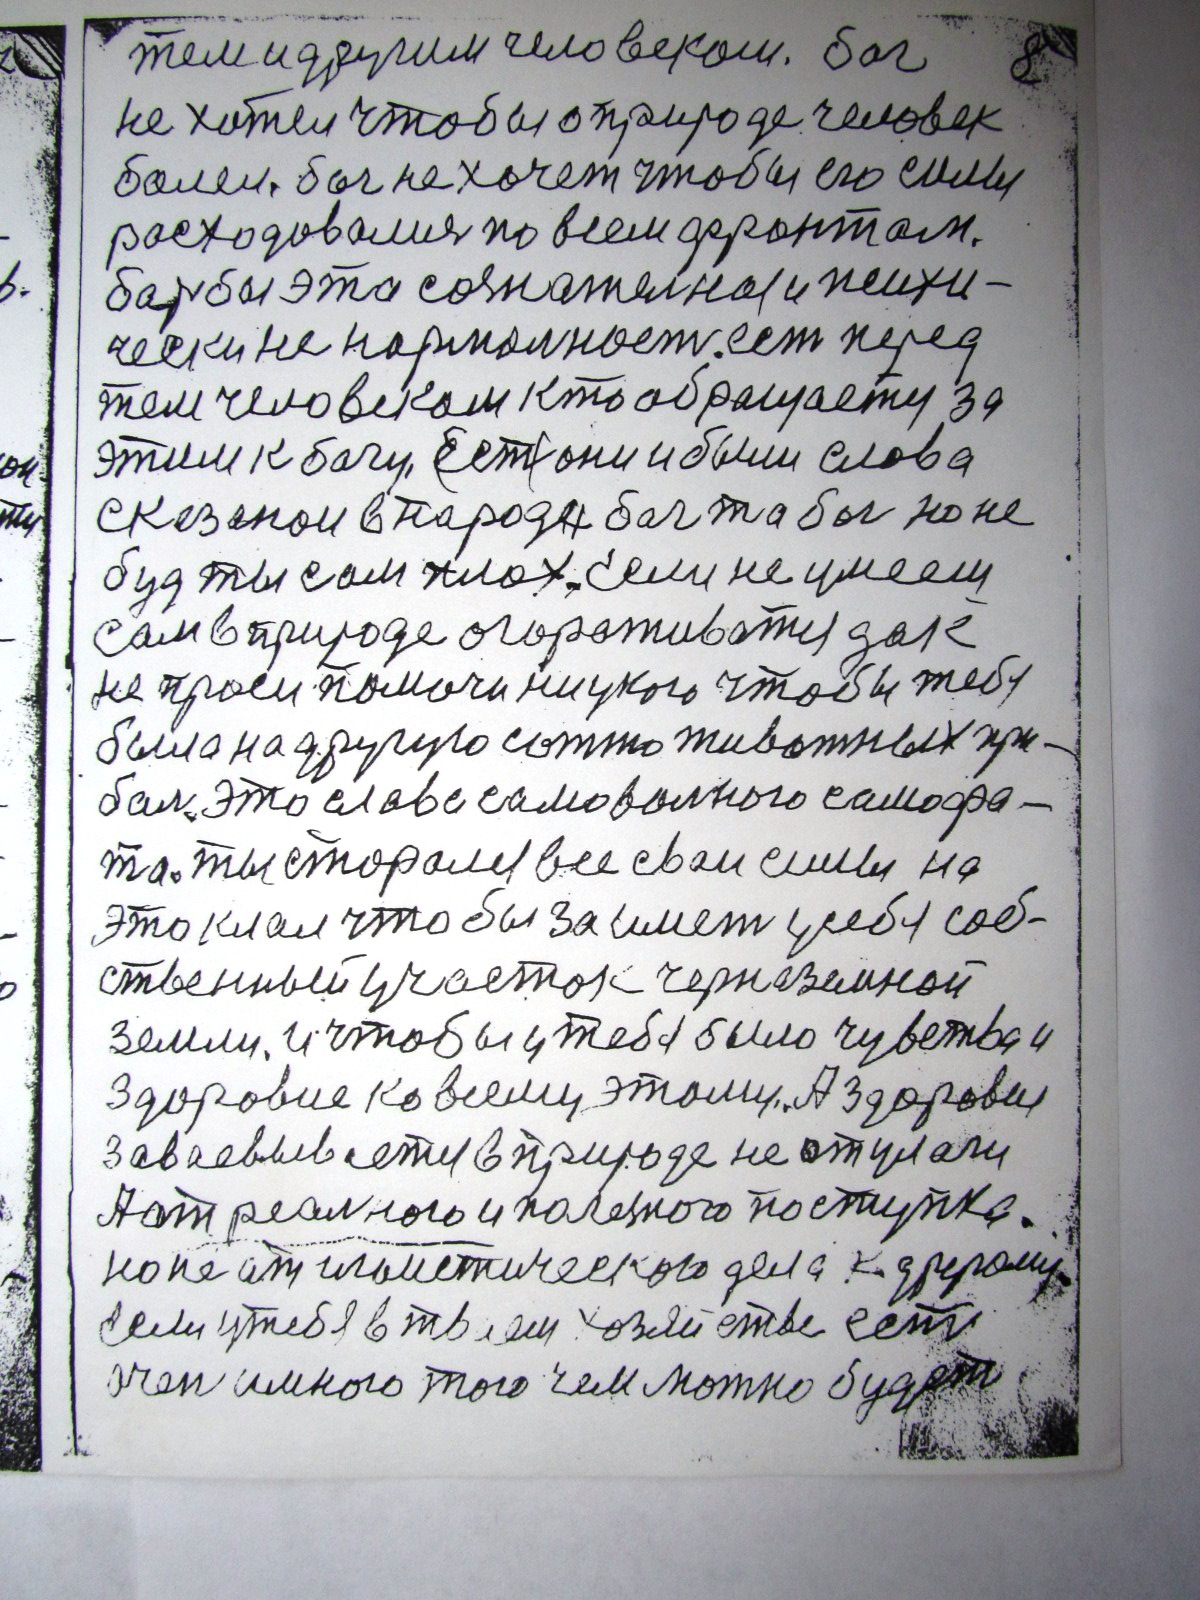 тем и другим человеком. бог 8
не хотел чтобы о природе человек
болел. бог не хочет чтобы его силы
росходовалися по всем фронтам.
баробы эта сознателная и психи-
чески не нормолност. ест перед
тем человеком кто обращаетя за
этим к богу. Ест они и были слова
сказаной в народе бог та бог но не
буд ты сам плох. Если не умееш
сам в природе огораживатя дак
не проси помочи ни укого чтобы тебя
была на другую сотню животных при-
бал. Это слова самоволного самофа-
та. ты сторался все свои силы на
это клал что бы заимет у себя соб-
ственный участок черназемной
земли. и чтобы у тебя было чувства и
здоровие ко всему этому. А здоровия
заваевываетя в природе не от улачи
А от реалного и полезного поступка.
но не от илоистического дела к другому.
Если у тебя в твоем хозяйстве есть
очен много того чем можно будет